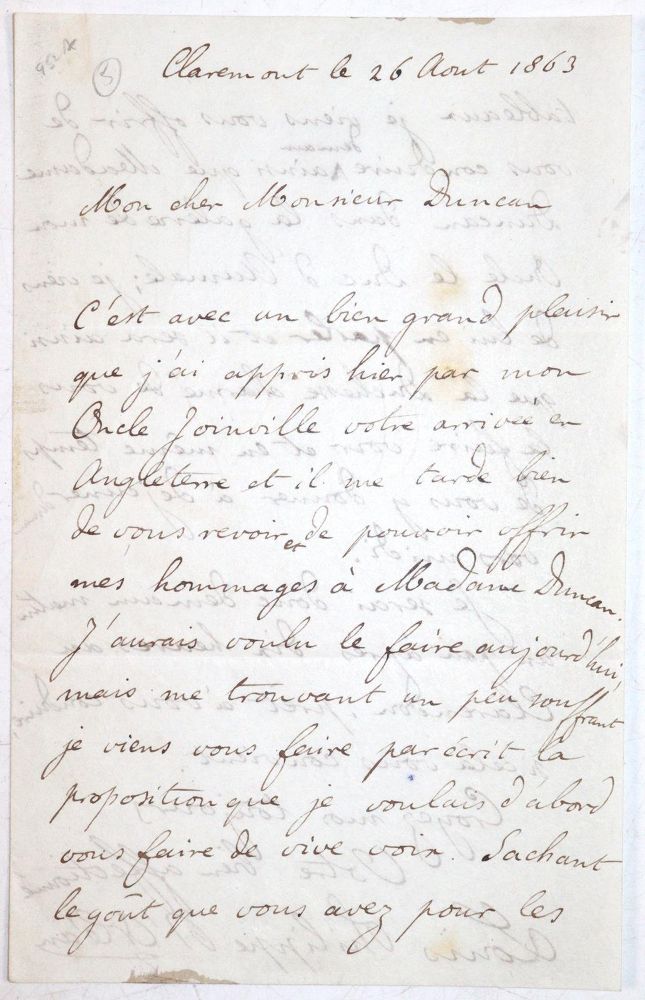 Claremont le 26 Aout 1863
Mon cher Monsieur Duncan
C'est avec un bien grand plaisir
que j'ai appris hier par mon
Oncle Joinville votre arrivée en
Angleterre et il me tarde bien
de vous revoir et de pouvoir offrir
mes hommages à Madame Duncan.
J'aurais voulu le faire aujourd'hui,
mais me trouvant un peu souffrant
je viens vous faire par écrit la
proposition que je voulais d'abord
vous faire de vive voix. Sachant
le goût que vous avez pour les